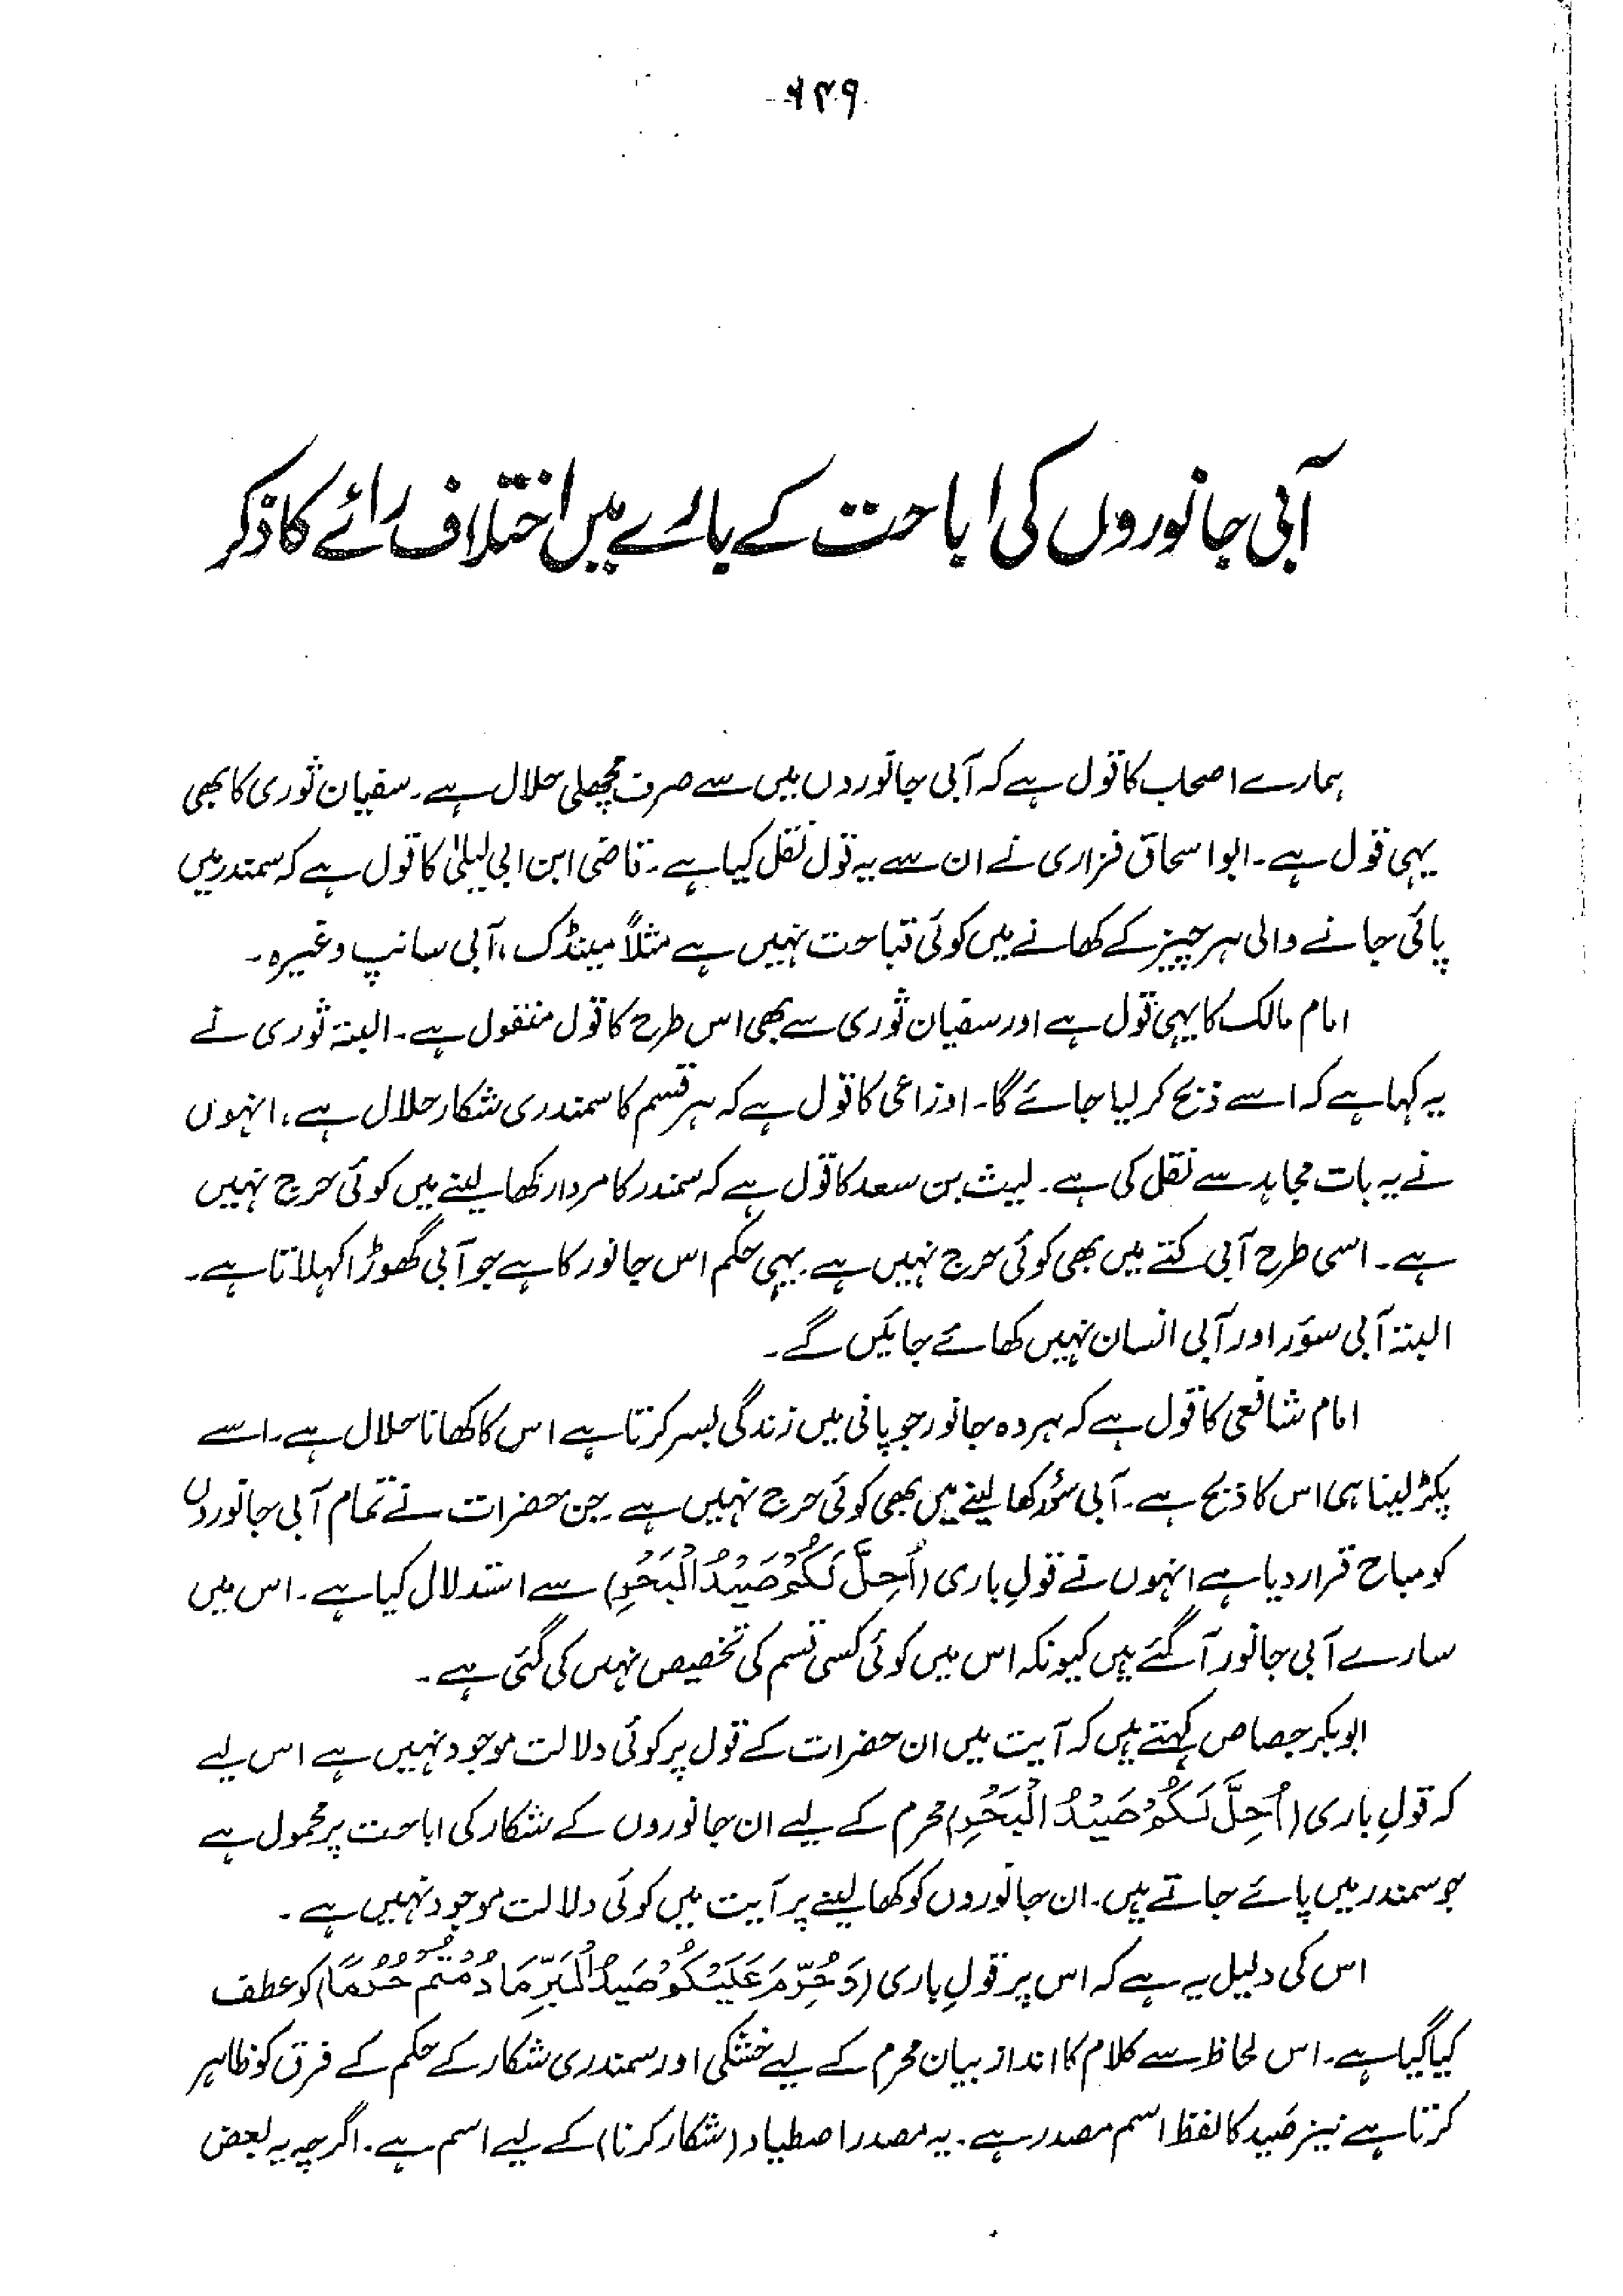 ۶۴۹
آبی جانوروں کی اباحت کے بارے میں اختلاف رائے کا ذکر
ہمارے اصحاب کا قول ہے کہ آبی جانوروں میں سے صرف مچھلی حلال ہے۔ سفیان ثوری کا بھی
یہی قول ہے۔ ابو اسحاق فزاری نے ان سے یہ قول نقل کیا ہے۔ قاضی ابن ابی لیلیٰ کا قول ہے کہ سمندر میں
پائی جانے والی ہر چیز کے کھانے میں کوئی قباحت نہیں ہے مثلاً مینڈک، آبی سانپ وغیرہ۔
امام مالک کا یہی قول ہے اور سفیان ثوری سے بھی اس طرح کا قول منقول ہے۔ البتہ ثوری نے
یہ کہا ہے کہ اسے ذبح کر لیا جائے گا۔ اوزاعی کا قول ہے کہ ہر قسم کا سمندری شکار حلال ہے، انہوں
نے یہ بات مجاہد سے نقل کی ہے۔ لیث بن سعد کا قول ہے کہ سمندر کا مردار کھا لینے میں کوئی حرج نہیں
ہے۔ اسی طرح آبی کتے میں بھی کوئی حرج نہیں ہے۔ یہی حکم اس جانور کا ہے جو آبی گھوڑا کہلاتا ہے۔
البتہ آبی سوَر اور آبی انسان نہیں کھائے جائیں گے۔
امام شافعی کا قول ہے کہ ہر وہ جانور جو پانی میں زندگی بسر کرتا ہے اس کا کھانا حلال ہے۔ اسے
پکڑ لینا ہی اس کا ذبح ہے۔ آبی سؤر کھا لینے میں بھی کوئی حرج نہیں ہے۔ جن حضرات نے تمام آبی جانوروں
کو مباح قرار دیا ہے انہوں نے قولِ باری (اُحِلَّ لَكُمْ صَيْدُ الْبَحْرِ) سے استدلال کیا ہے۔ اس میں
سارے آبی جانور آگئے ہیں کیونکہ اس میں کوئی کسی قسم کی تخصیص نہیں کی گئی ہے۔
ابو بکر جصاص کہتے ہیں کہ آیت میں ان حضرات کے قول پر کوئی دلالت موجود نہیں ہے اس لیے
کہ قولِ باری (اُحِلَّ لَكُمْ صَيْدُ الْبَحْرِ) محرم کے لیے ان جانوروں کے شکار کی اباحت پر محمول ہے
جو سمندر میں پائے جاتے ہیں۔ ان جانوروں کو کھا لینے پر آیت میں کوئی دلالت موجود نہیں ہے۔
اس کی دلیل یہ ہے کہ اس پر قولِ باری (وَحُرِّمَ عَلَيْكُمْ صَيْدُ الْبَرِّ مَا دُمْتُمْ حُرُمًا) کو عطف
کیا گیا ہے۔ اس لحاظ سے کلام کا انداز بیان محرم کے لیے خشکی اور سمندری شکار کے حکم کے فرق کو ظاہر
کرتا ہے نیز صَید کا لفظ اسم مصدر ہے۔ یہ مصدر اصطیاد (شکار کرنا) کے لیے اسم ہے۔ اگرچہ یہ بعض